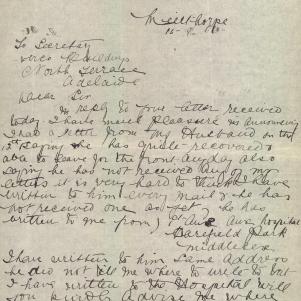 Millthorpe
15-9-
To Secretary
Buildings
North Terrace
Adelaide
Dear Sir
In reply to your letter received
today I have much Pleasure in announcing
I had a letter from my Husband on the
saying he has quite recovered
to leave for the front any day also
saying he has not received any of my
letters it is very hard to think I have
written to him every mail & he has
not received one as yet he has
written to me from 1st Aus Aux hospital
Harefield Park
Middlesex
I have written to him same Address
he did not tell me where to write to but
I have written to the Hospital will
you kindly Advise me where